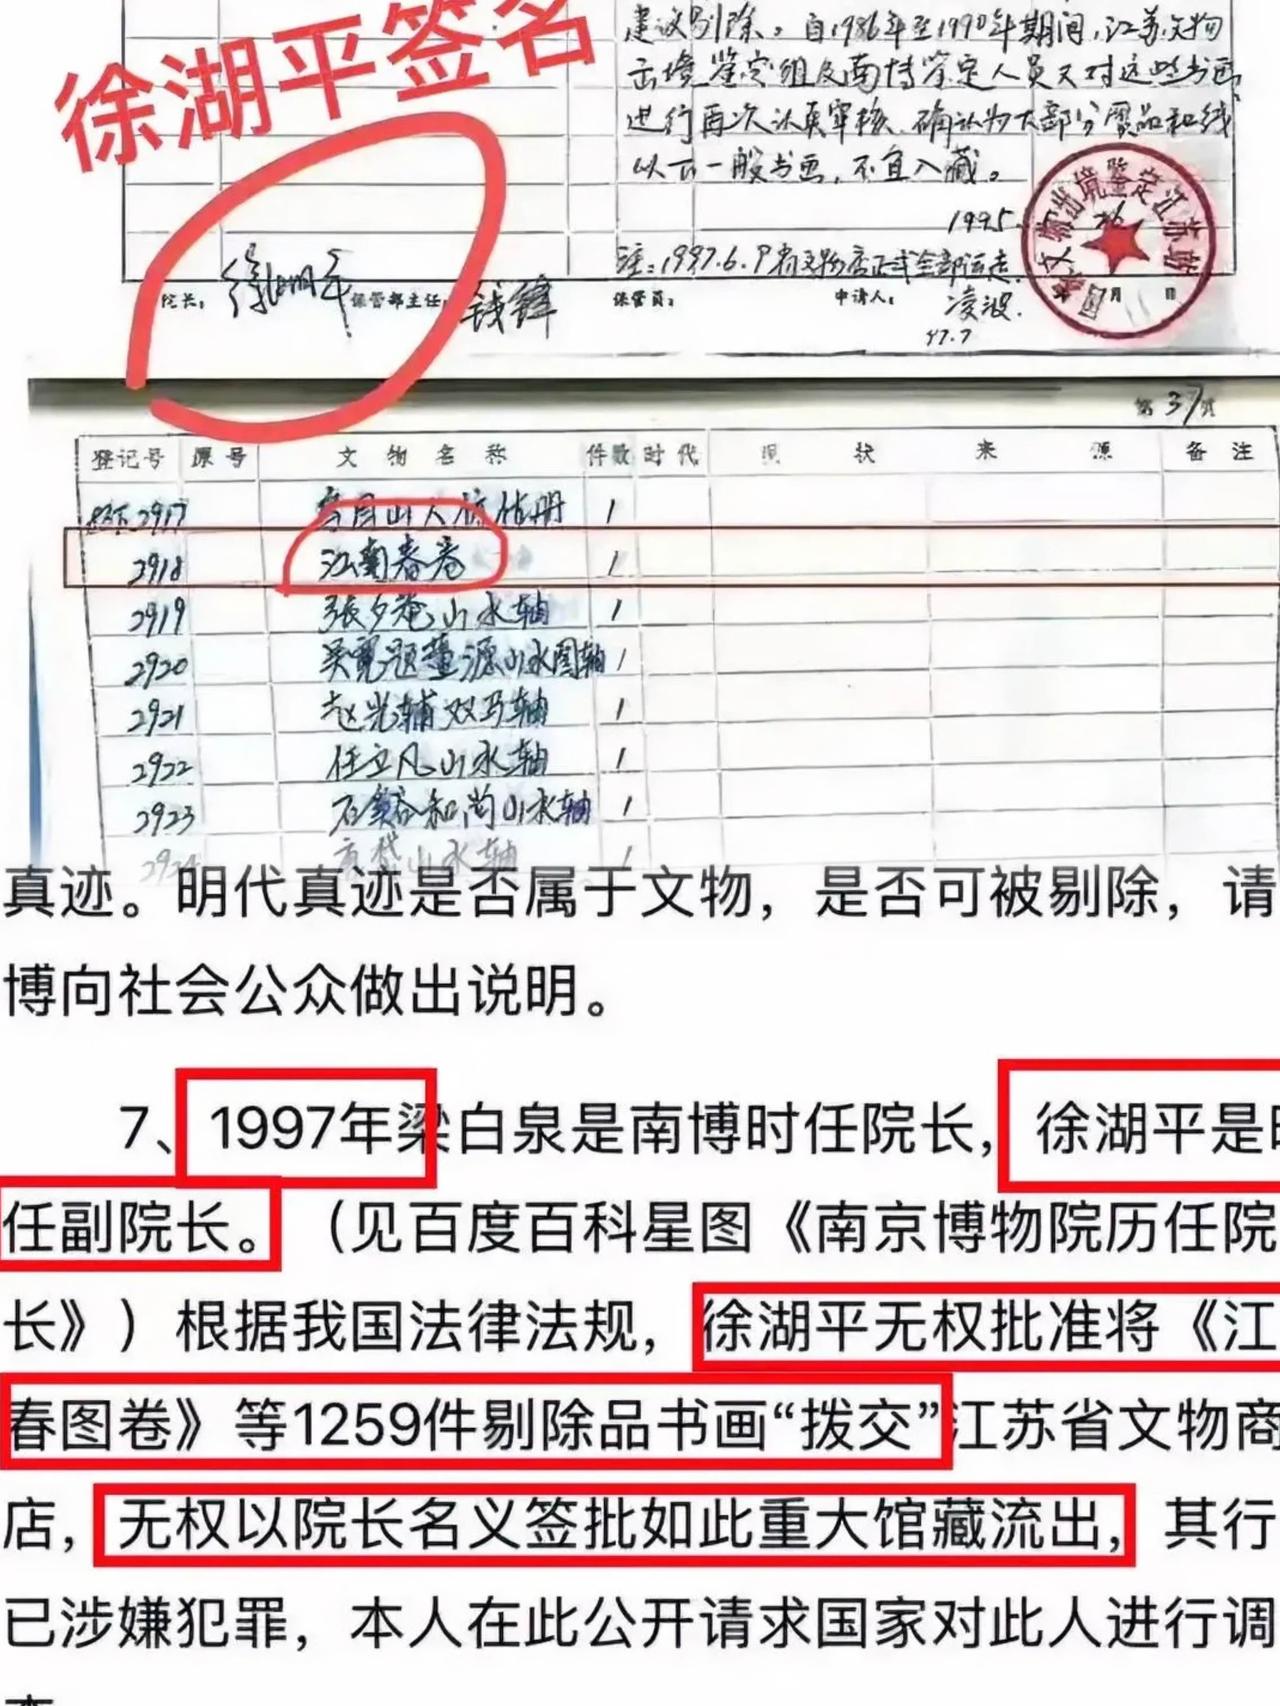 徐湖平签名
建议剔除。自1986年至1990年期间,江苏文物
出境鉴定组及南博鉴定人员又对这些书画
进行再次认真审核、确认为大部分赝品和线
以下一般书画,不宜入藏。
1995.
注:1997.6.9
院长: 徐湖平 保管部主任: 钱锋 保管员: 申请人: 凌波.
97.7
月 日
第37页
登记号 原号 文物名称 件数 时代 现状 来源 备注
2917 1
2918 江南春卷 1
2919 張夕菴山水轴 1
2920 吴寛题董源山水图轴 1
2921 赵光辅双马轴 1
2922 任立凡山水轴 1
2923 石谿和尚山水轴 1
2924 山水轴 1
真迹。明代真迹是否属于文物，是否可被剔除，请
博向社会公众做出说明。
7、1997年梁白泉是南博时任院长，徐湖平是时
任副院长。（见百度百科星图《南京博物院历任院
长》）根据我国法律法规，徐湖平无权批准将《江
春图卷》等1259件剔除品书画“拨交”江苏省文物商
店，无权以院长名义签批如此重大馆藏流出，其行
已涉嫌犯罪，本人在此公开请求国家对此人进行调